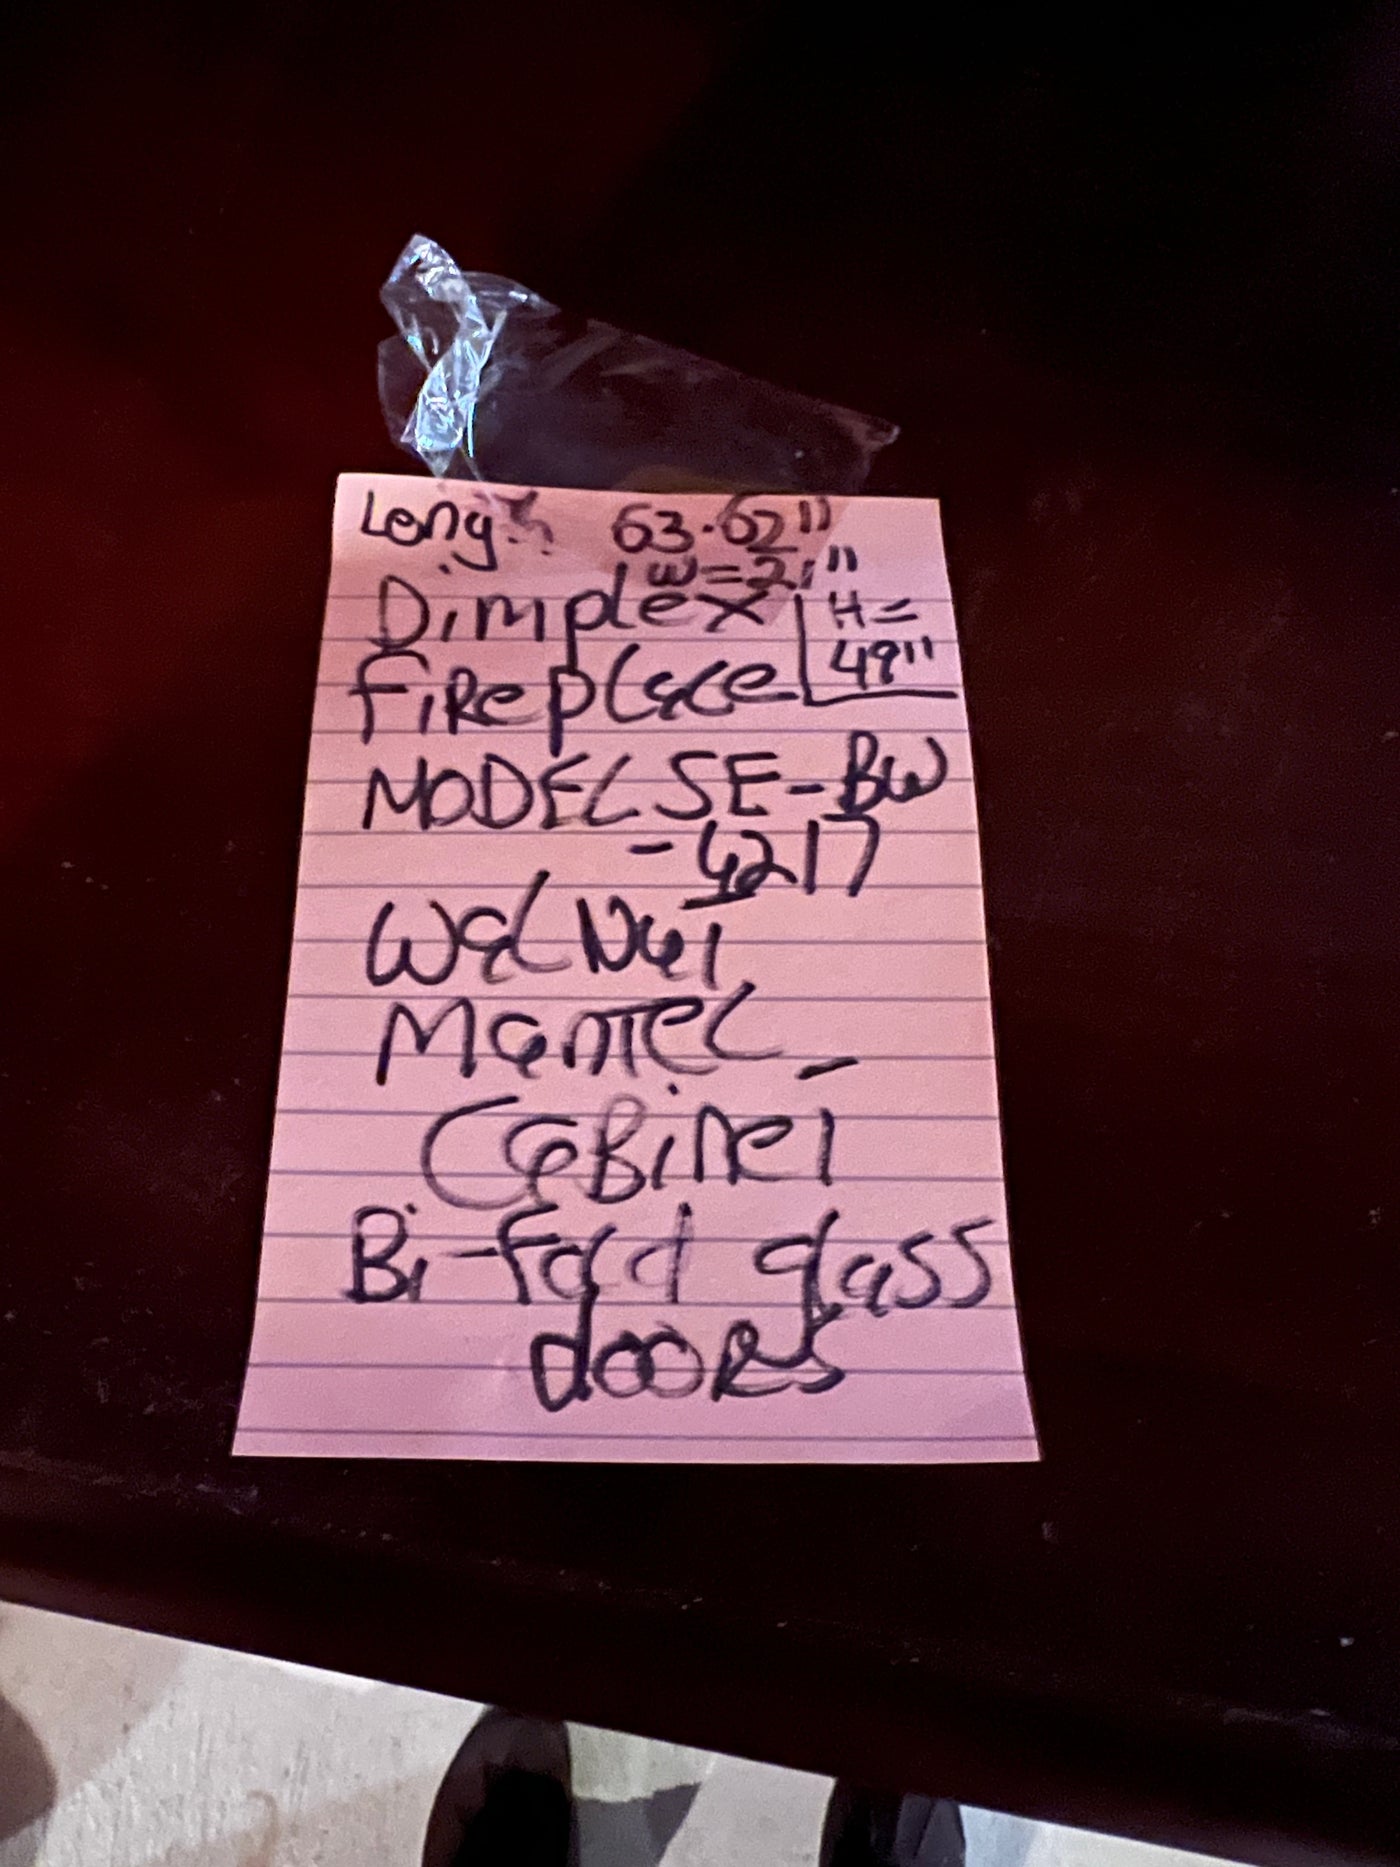 Length 63.62"
W=21"
Dimplex H=
Fireplace 49"
MODEL SE-BW
-4217
Walnut
Mantel -
Cabinet
Bi-fold glass
dooRs